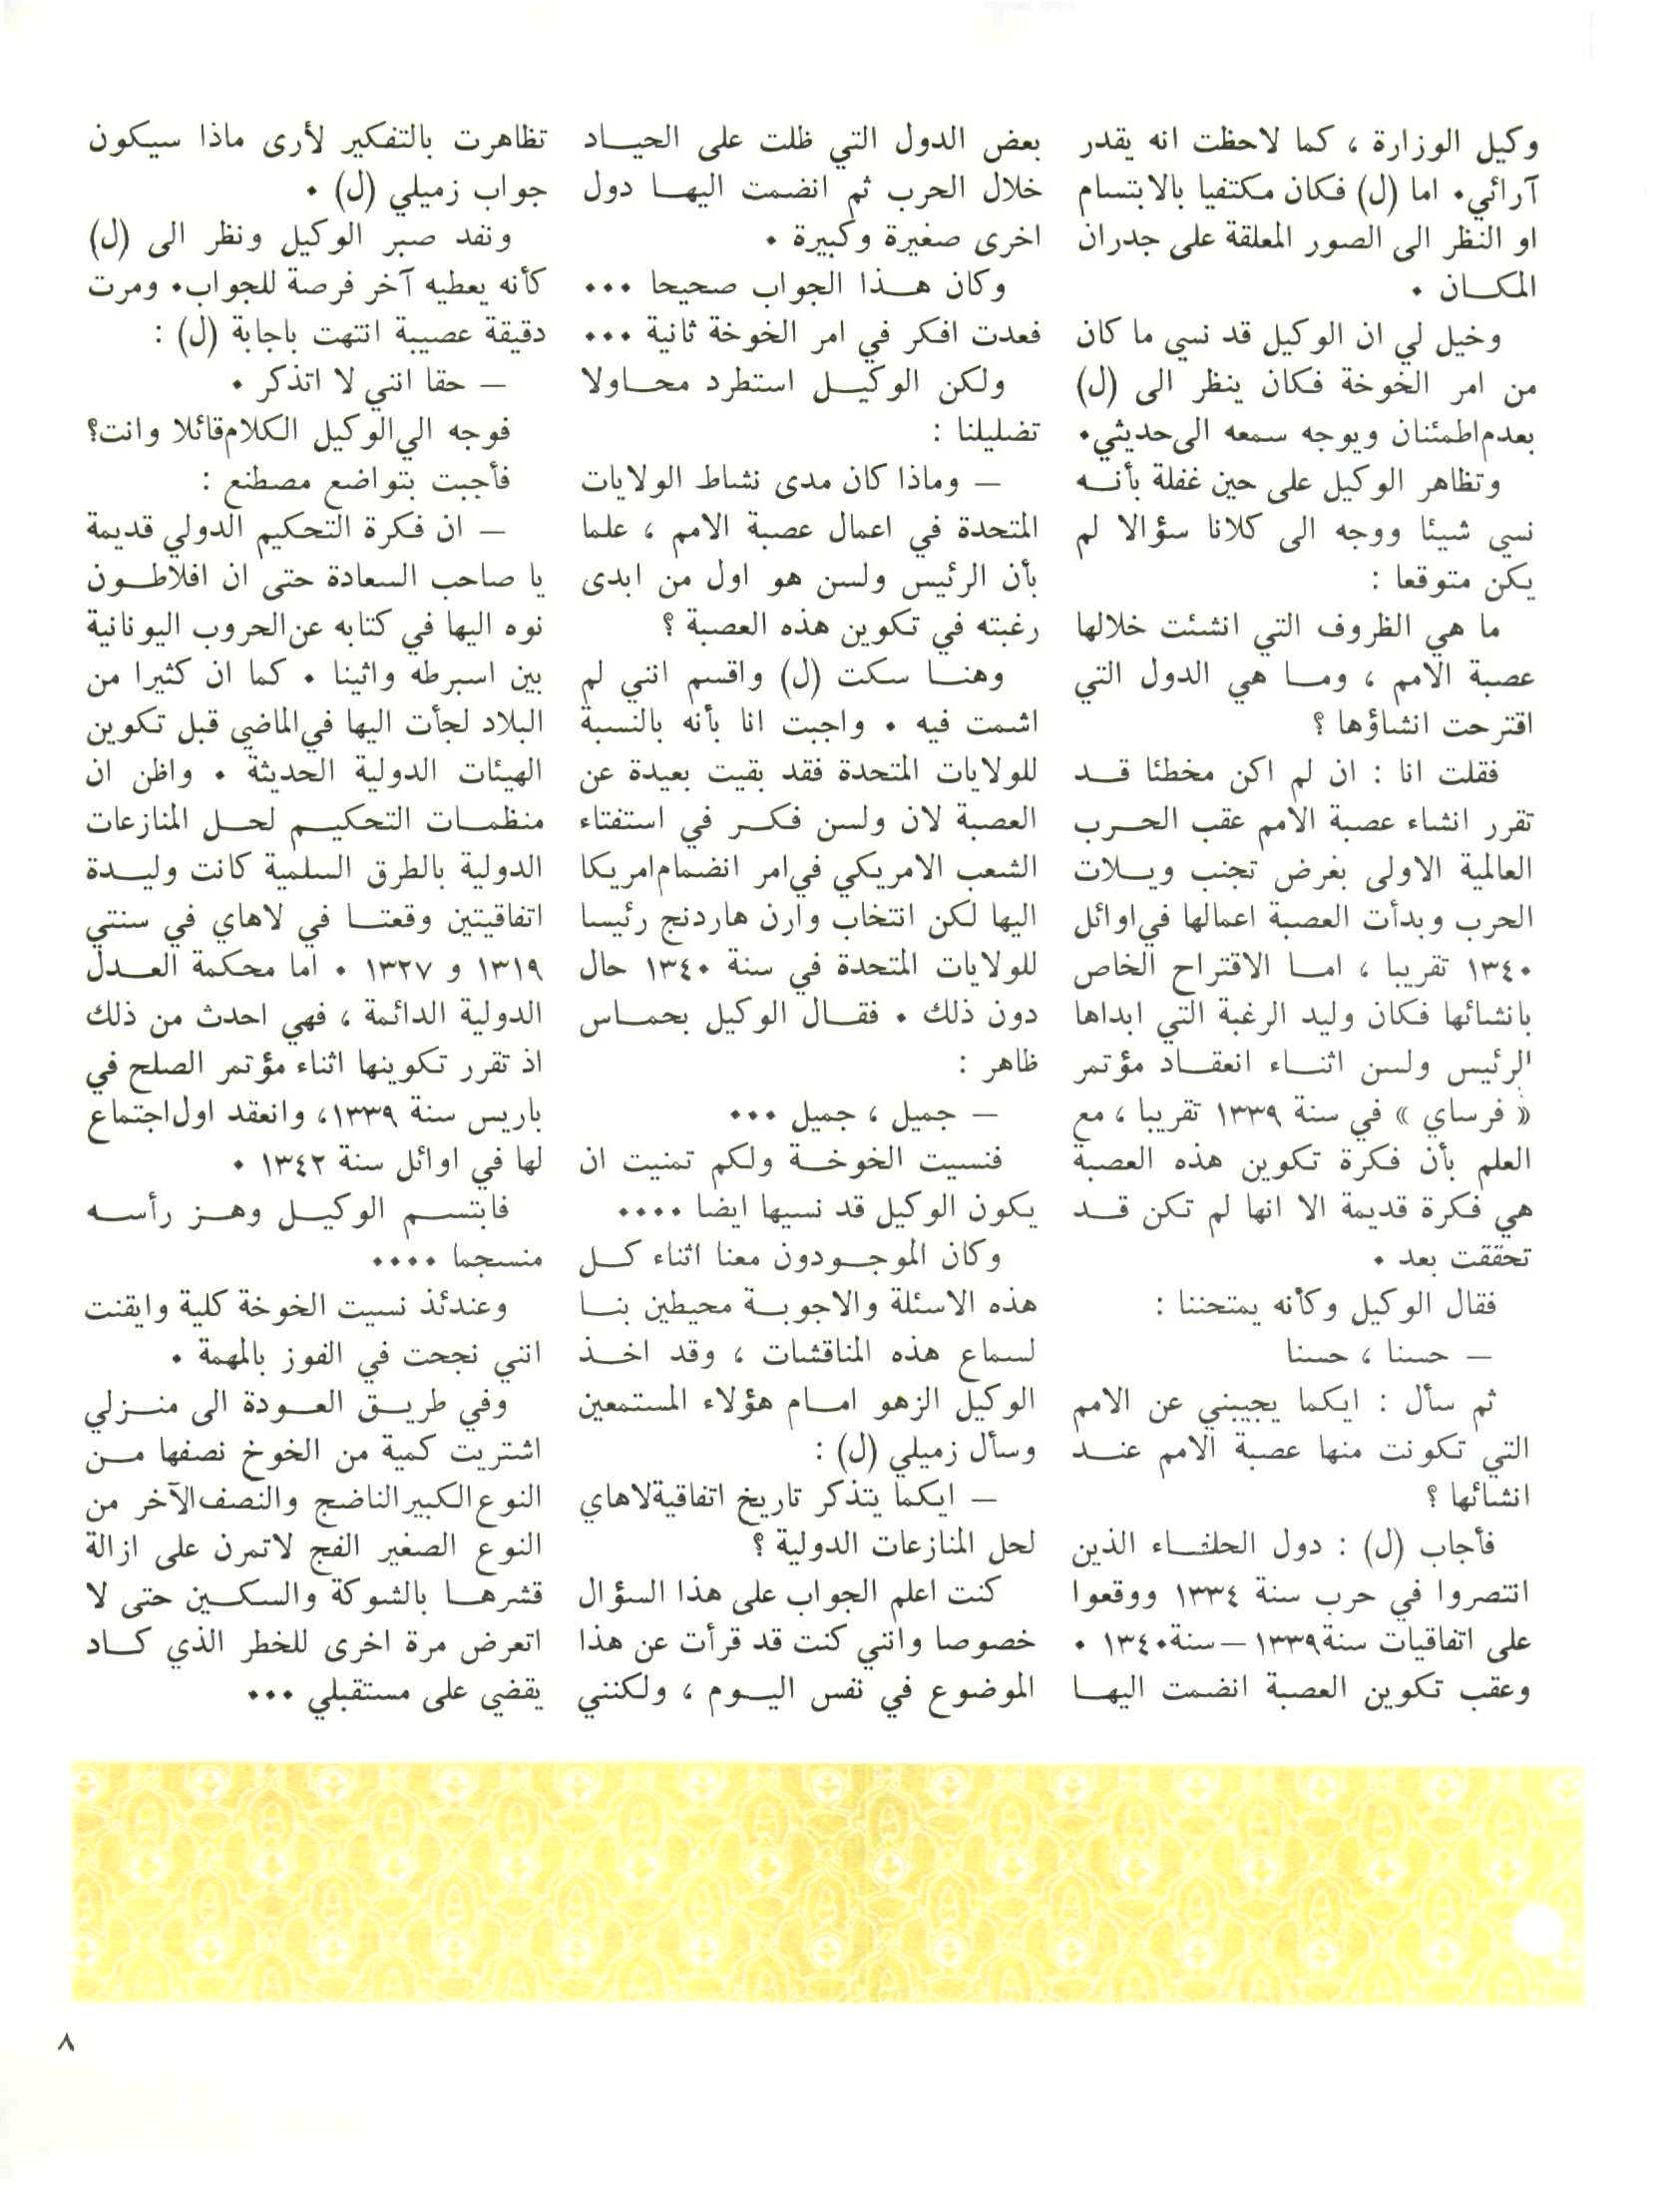 وكيل الوزارة ، كما لاحظت انه يقدر
آرائي٠ اما (ل) فكان مكتفيا بالابتسام
او النظر الى الصور المعلقة على جدران
المكـان ٠
وخيل لي ان الوكيل قد نسي ما كان
من امر الخوخة فكان ينظر الى (ل)
بعدم اطمئنان ويوجه سمعه الى حديثي٠
وتظاهر الوكيل على حين غفلة بأنـه
نسي شيئا ووجه الى كلانا سؤالا لم
يكن متوقعا :
ما هي الظروف التي انشئت خلالها
عصبة الامم ، ومـا هي الدول التي
اقترحت انشاؤها ؟
فقلت انا : ان لم اكن مخطئا قـد
تقرر انشاء عصبة الامم عقب الحـرب
العالمية الاولى بغرض تجنب ويـلات
الحرب وبدأت العصبة اعمالها في اوائل
١٣٤٠ تقريبا ، امـا الاقتراح الخاص
بانشائها فكان وليد الرغبة التي ابداها
الرئيس ولسن اثنـاء انعقـاد مؤتمر
« فرساي » في سنة ١٣٣٩ تقريبا ، مع
العلم بأن فكرة تكوين هذه العصبة
هي فكرة قديمة الا انها لم تكن قـد
تحققت بعد ٠
فقال الوكيل وكأنه يمتحننا :
ـ حسنا ، حسنا
ثم سأل : ايكما يجيبني عن الامم
التي تكونت منها عصبة الامم عنـد
انشائها ؟
فأجاب (ل) : دول الحلفـاء الذين
انتصروا في حرب سنة ١٣٣٤ ووقعوا
على اتفاقيات سنة ١٣٣٩ – سنة ١٣٤٠ ٠
وعقب تكوين العصبة انضمت اليهـا
بعض الدول التي ظلت على الحيـاد
خلال الحرب ثم انضمت اليهـا دول
اخرى صغيرة وكبيرة ٠
وكان هـذا الجواب صحيحا ٠٠٠
فعدت افكر في امر الخوخة ثانية ٠٠٠
ولكن الوكيـل استطرد محـاولا
تضليلنا :
ـ وماذا كان مدى نشاط الولايات
المتحدة في اعمال عصبة الامم ، علما
بأن الرئيس ولسن هو اول من ابدى
رغبته في تكوين هذه العصبة ؟
وهنـا سكت (ل) واقسم انني لم
اشمت فيه ٠ واجبت انا بأنه بالنسبة
للولايات المتحدة فقد بقيت بعيدة عن
العصبة لان ولسن فكـر في استفتاء
الشعب الامريكي في امر انضمام امريكا
اليها لكن انتخاب وارن هاردنج رئيسا
للولايات المتحدة في سنة ١٣٤٠ حال
دون ذلك ٠ فقـال الوكيل بحمـاس
ظاهر :
ـ جميل ، جميل ٠٠٠
فنسيت الخوخـة ولكم تمنيت ان
يكون الوكيل قد نسيها ايضا ٠٠٠٠
وكان الموجـودون معنا اثناء كـل
هذه الاسئلة والاجوبـة محيطين بنـا
لسماع هذه المناقشات ، وقد اخـذ
الوكيل الزهو امـام هؤلاء المستمعين
وسأل زميلي (ل) :
ـ ايكما يتذكر تاريخ اتفاقية لاهاي
لحل المنازعات الدولية ؟
كنت اعلم الجواب على هذا السؤال
خصوصا وانني كنت قد قرأت عن هذا
الموضوع في نفس اليـوم ، ولكنني
تظاهرت بالتفكير لأرى ماذا سيكون
جواب زميلي (ل) ٠
ونفد صبر الوكيل ونظر الى (ل)
كأنه يعطيه آخر فرصة للجواب٠ ومرت
دقيقة عصيبة انتهت باجابة (ل) :
ـ حقا انني لا اتذكر ٠
فوجه الي الوكيل الكلام قائلا وانت؟
فأجبت بتواضع مصطنع :
ـ ان فكرة التحكيم الدولي قديمة
يا صاحب السعادة حتى ان افلاطـون
نوه اليها في كتابه عن الحروب اليونانية
بين اسبرطه واثينا ٠ كما ان كثيرا من
البلاد لجأت اليها في الماضي قبل تكوين
الهيئات الدولية الحديثة ٠ واظن ان
منظمـات التحكيـم لحـل المنازعات
الدولية بالطرق السلمية كانت وليـدة
اتفاقيتين وقعتـا في لاهاي في سنتي
١٣١٩ و ١٣٢٧ ٠ اما محكمة العـدل
الدولية الدائمة ، فهي احدث من ذلك
اذ تقرر تكوينها اثناء مؤتمر الصلح في
باريس سنة ١٣٣٩، وانعقد اول اجتماع
لها في اوائل سنة ١٣٤٢ ٠
فابتسـم الوكيـل وهـز رأسـه
منسجما ٠٠٠٠
وعندئذ نسيت الخوخة كلية وايقنت
انني نجحت في الفوز بالمهمة ٠
وفي طريـق العـودة الى منـزلي
اشتريت كمية من الخوخ نصفها مـن
النوع الكبير الناضج والنصف الآخر من
النوع الصغير الفج لاتمرن على ازالة
قشرهـا بالشوكة والسكـين حتى لا
اتعرض مرة اخرى للخطر الذي كـاد
يقضي على مستقبلي ٠٠٠
٨